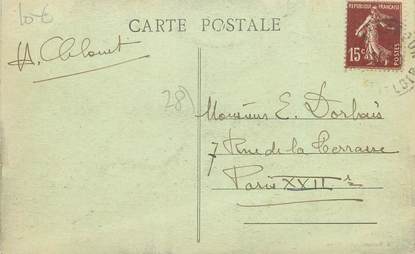 10€
CARTE POSTALE
REPUBLIQUE FRANÇAISE
15c
POSTES
28)
Monsieur E. Dorbais
7 Rue de la Terrasse
Paris XXII